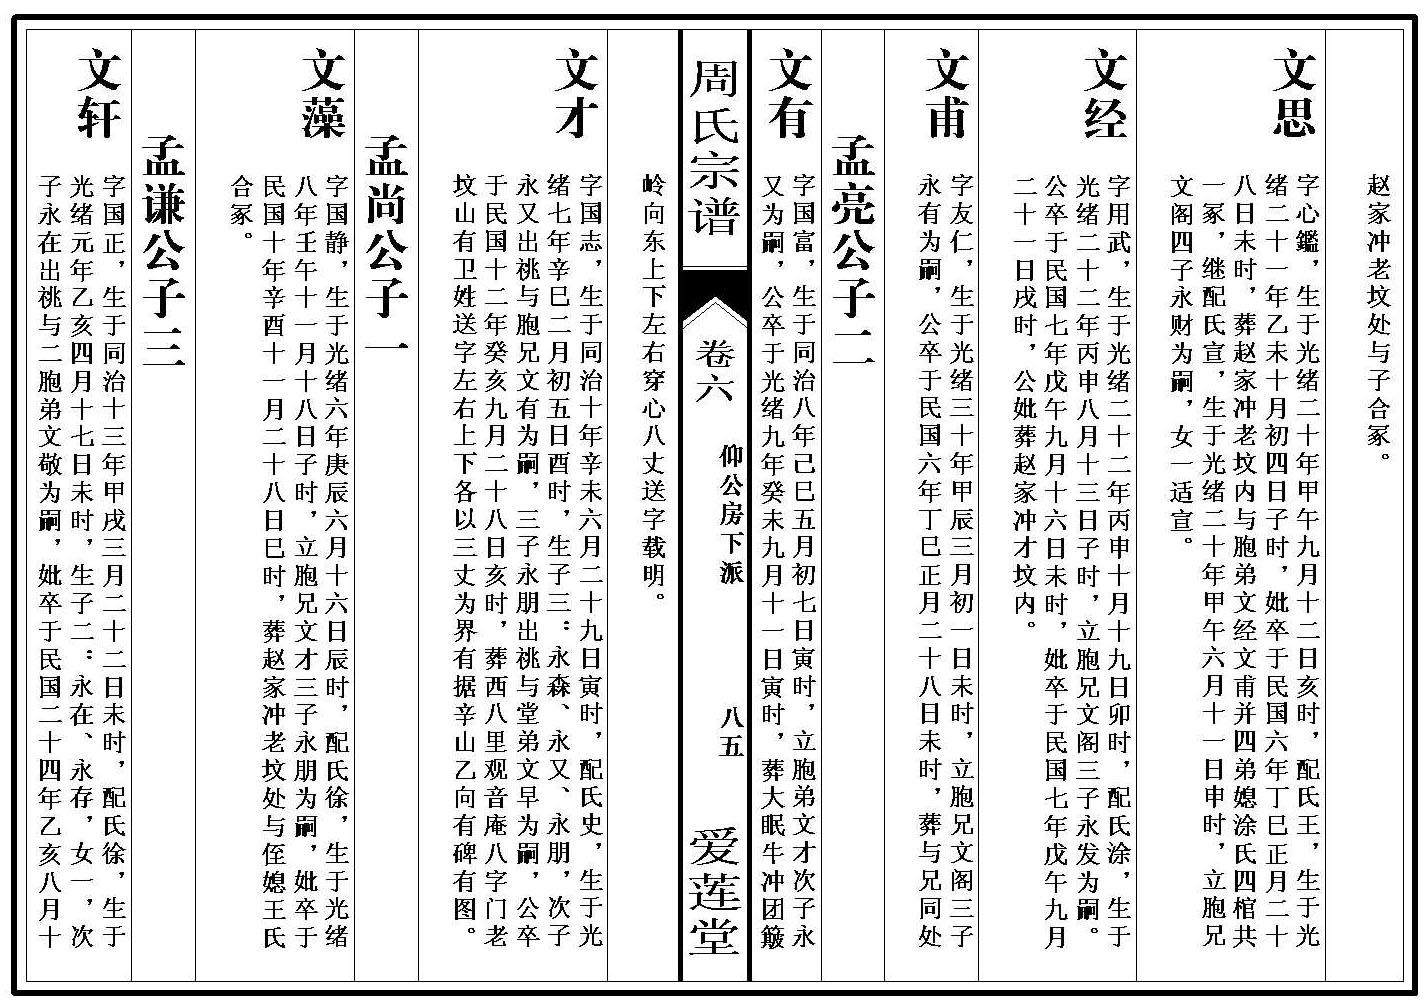 赵家冲老坟处与子合冢。
文思
字心鑑，生于光绪二十年甲午九月十二日亥时，配氏王，生于光
绪二十一年乙未十月初四日子时，妣卒于民国六年丁巳正月二十
八日未时，葬赵家冲老坟内与胞弟文经文甫并四弟媳涂氏四棺共
一冢，继配氏宣，生于光绪二十年甲午六月十一日申时，立胞兄
文阁四子永财为嗣，女一适宣。
文经
字用武，生于光绪二十二年丙申十月十九日卯时，配氏涂，生于
光绪二十二年丙申八月十三日子时，立胞兄文阁三子永发为嗣。
公卒于民国七年戊午九月十六日未时，妣卒于民国七年戊午九月
二十一日戌时，公妣葬赵家冲才坟内。
文甫
字友仁，生于光绪三十年甲辰三月初一日未时，立胞兄文阁三子
永有为嗣，公卒于民国六年丁巳正月二十八日未时，葬与兄同处
孟亮公子二
文有
字国富，生于同治八年己巳五月初七日寅时，立胞弟文才次子永
又为嗣，公卒于光绪九年癸未九月十一日寅时，葬大眠牛冲团簸
周氏宗谱
卷六
仰公房下派
八五
爱莲堂
岭向东上下左右穿心八丈送字载明。
文才
字国志，生于同治十年辛未六月二十九日寅时，配氏史，生于光
绪七年辛巳二月初五日酉时，生子三：永森、永又、永朋，次子
永又出祧与胞兄文有为嗣，三子永朋出祧与堂弟文早为嗣，公卒
于民国十二年癸亥九月二十八日亥时，葬西八里观音庵八字门老
坟山有卫姓送字左右上下各以三丈为界有据辛山乙向有碑有图。
孟尚公子一
文藻
字国静，生于光绪六年庚辰六月十六日辰时，配氏徐，生于光绪
八年壬午十一月十八日子时，立胞兄文才三子永朋为嗣，妣卒于
民国十年辛酉十一月二十八日巳时，葬赵家冲老坟处与侄媳王氏
合冢。
孟谦公子三
文轩
字国正，生于同治十三年甲戌三月二十二日未时，配氏徐，生于
光绪元年乙亥四月十七日未时，生子二：永在、永存，女一，次
子永在出祧与二胞弟文敬为嗣，妣卒于民国二十四年乙亥八月十